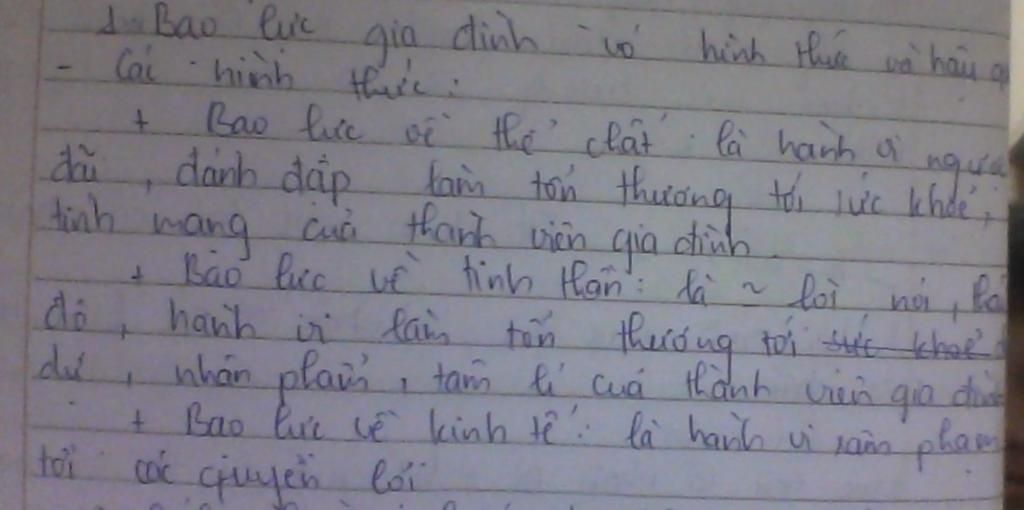 1. Bạo lực gia đình có hình thức và hậu q
- Các hình thức:
+ Bạo lực về thể chất: là hành vi ngược
đãi, đánh đập làm tổn thương tới sức khỏe,
tính mạng của thành viên gia đình.
+ Bạo lực về tinh thần: là ~ lời nói,
độ, hành vi làm tổn thương tới sức khoẻ
dự, nhân phẩm, tâm lí của thành viên gia đình
+ Bạo lực về kinh tế: là hành vi xâm phạm
tới các quyền lợi